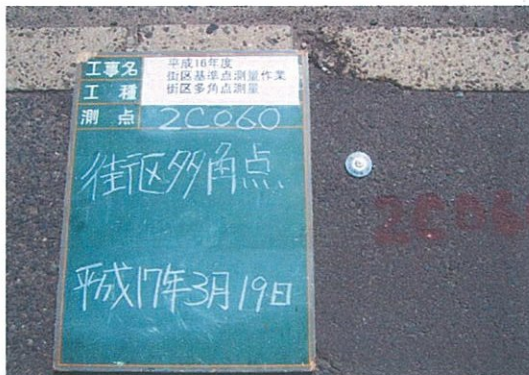 工事名 平成16年度
街区基準点測量作業
工種 街区多角点測量
測点 2C060
街区多角点
平成17年3月19日
2C06